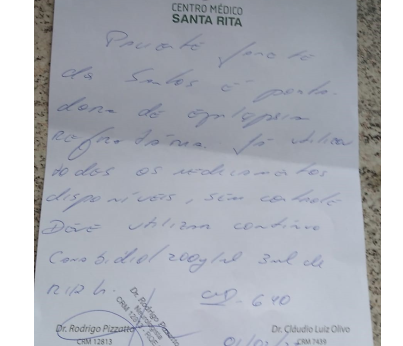 CENTRO MÉDICO
SANTA RITA
Paciente
da Santos é porta
dora de epilepsia
Refratária Já utilizou
todos os medicamentos
disponíveis, sem controle
Deve utilizar contínuo
Canabidiol 200mg/ml 3ml de
12/12 h.
640
Dr. Rodrigo Pizzatto
CRM 12813
Dr. Rodrigo Pizzatto
Dr. Cláudio Luiz Olivo
CRM 7439